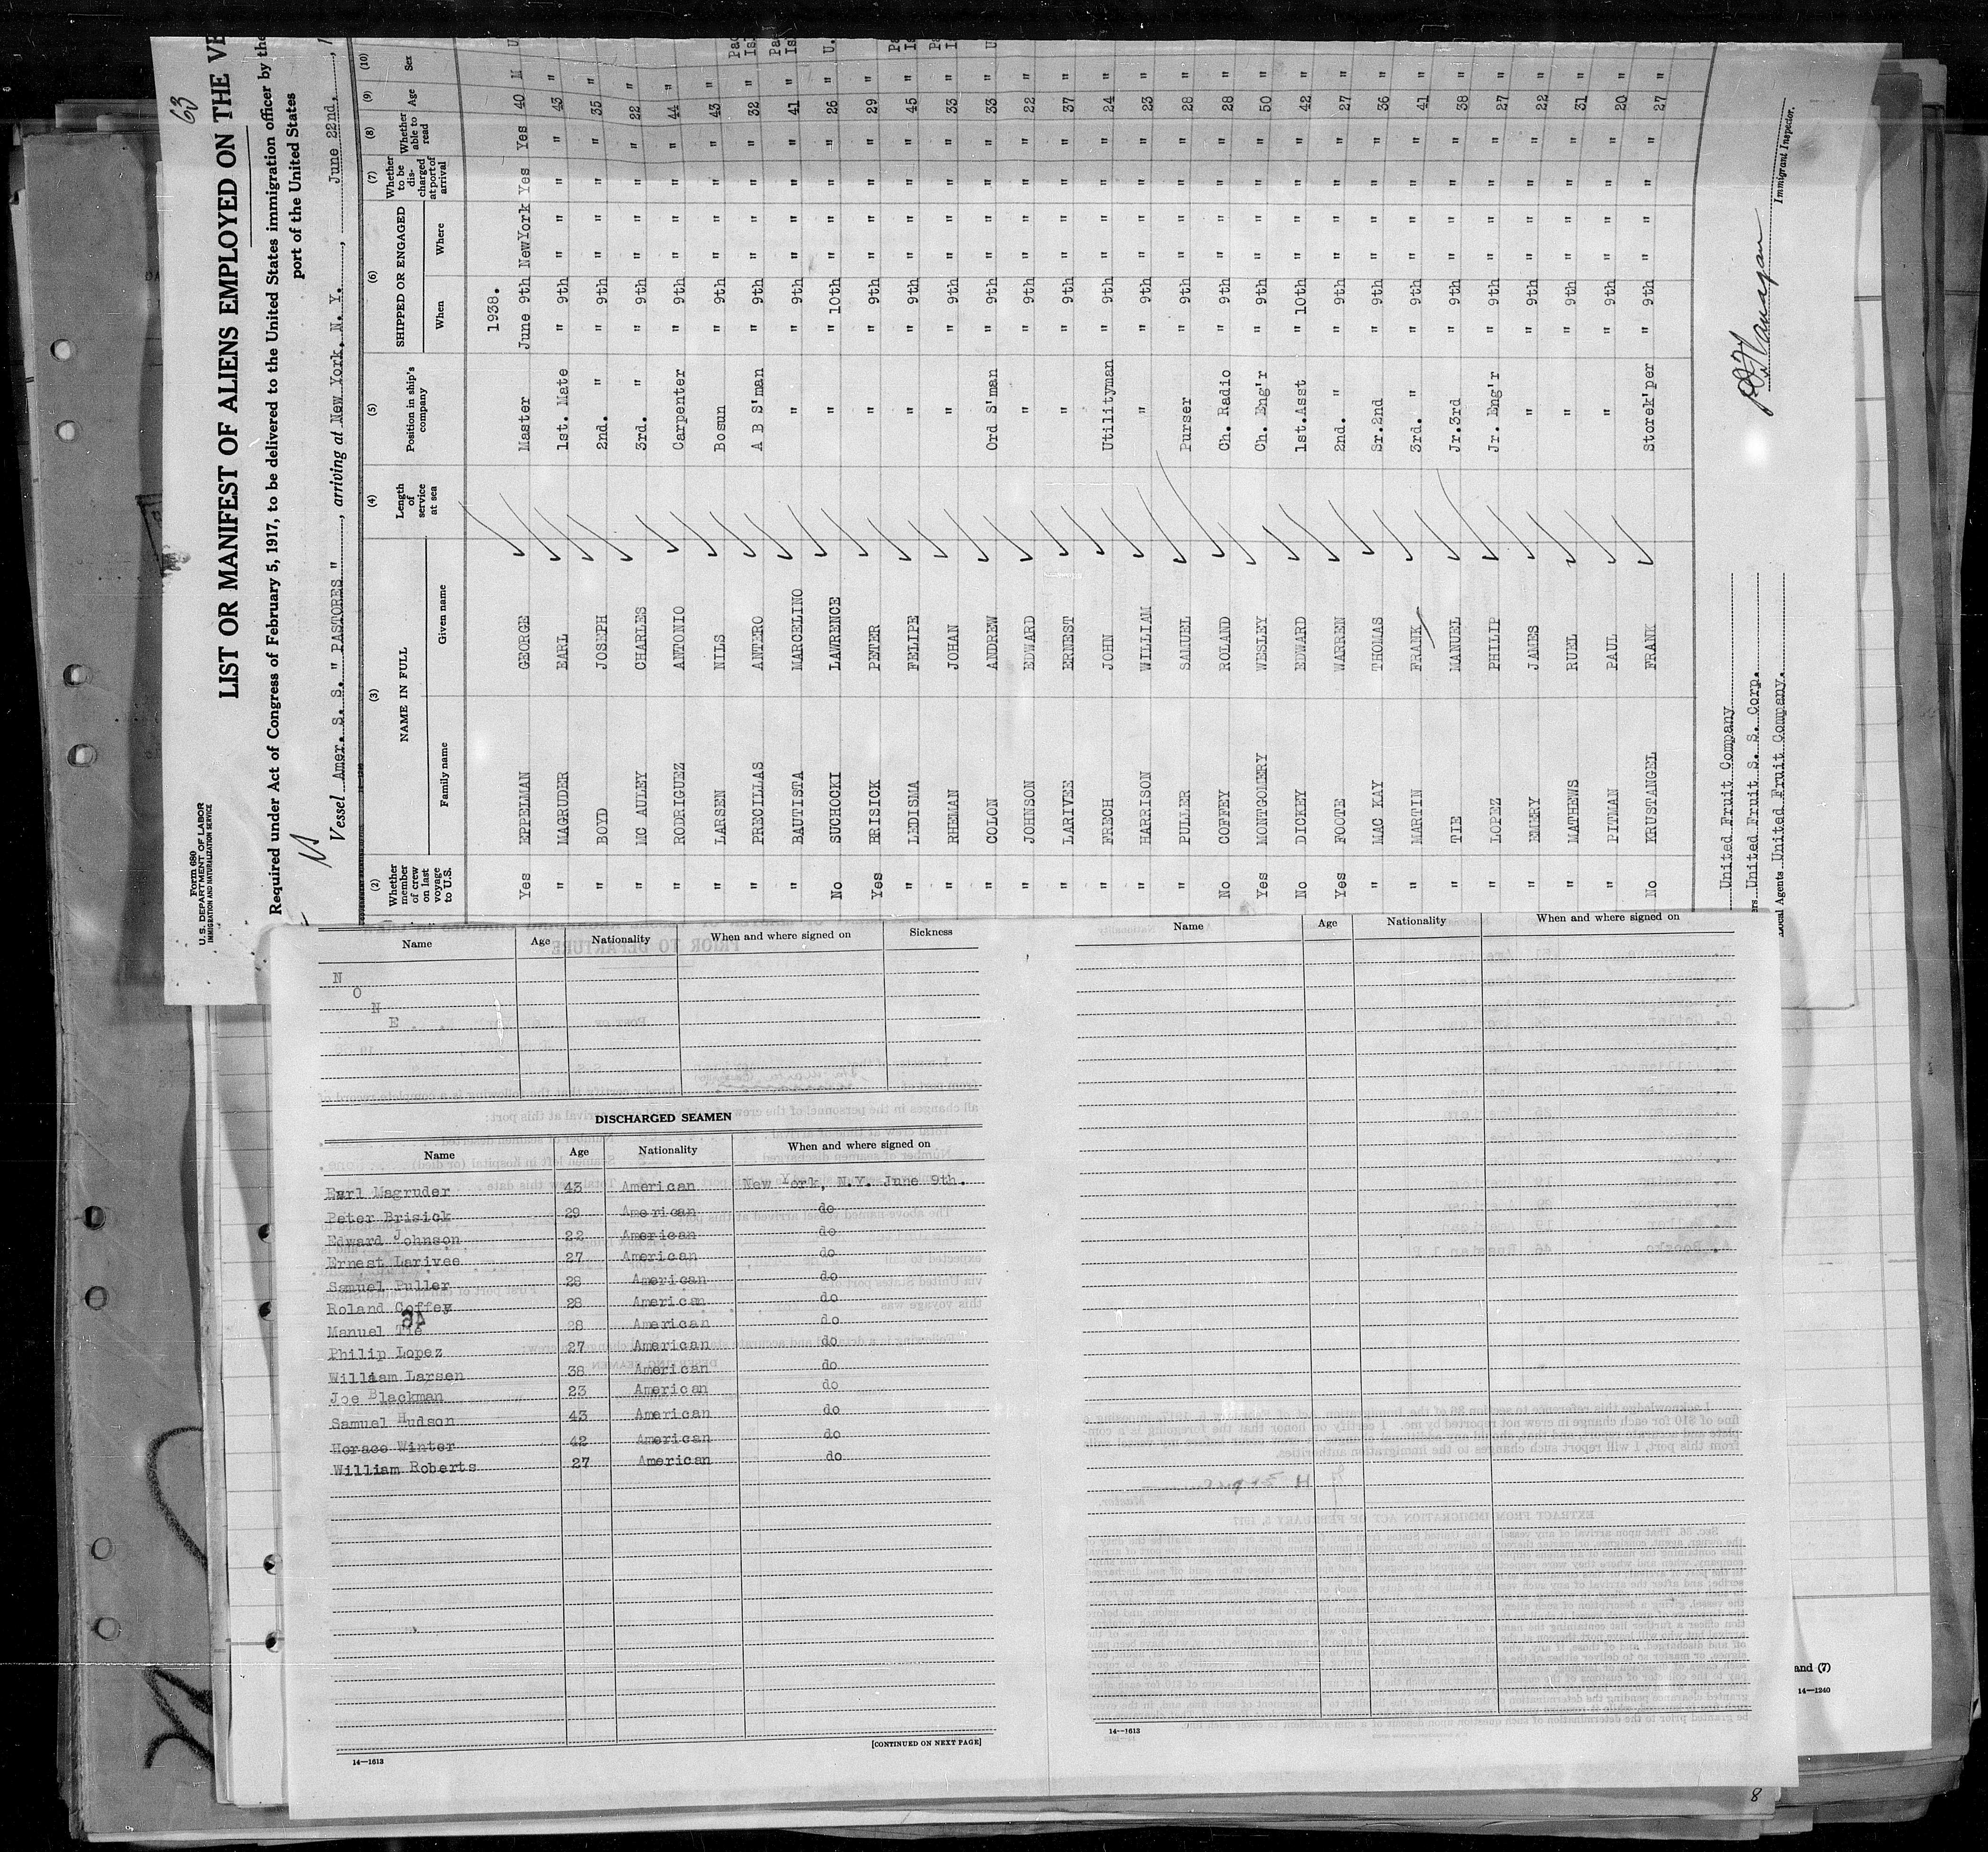 63
Form 680
U. S. DEPARTMENT OF LABOR
IMMIGRATION AND NATURALIZATION SERVICE
LIST OR MANIFEST OF ALIENS EMPLOYED ON THE VE
Required under Act of Congress of February 5, 1917, to be delivered to the United States immigration officer by the
port of the United States
Vessel Amer. S. S. " PASTORES ", arriving at New York, N. Y., June 22nd,
(2) (3) (4) (5) (6) (7) (8) (9) (10)
Whether member of crew on last voyage to U.S. NAME IN FULL Family name Given name Length of service at sea Position in ship's company SHIPPED OR ENGAGED When Where Whether to be discharged at port of arrival Whether able to read Age Sex
1938.
Yes EPPELMAN GEORGE Master June 9th NewYork Yes Yes 40 M U
" MAGRUDER EARL 1st. Mate " 9th " " " 43 "
" BOYD JOSEPH 2nd. " " 9th " " " 35 "
" MC AULEY CHARLES 3rd. " " 9th " " " 22 "
" RODRIGUEZ ANTONIO Carpenter " 9th " " " 44 "
" LARSEN NILS Bosun " 9th " " " 43 "
" PRECILLAS ANTERO A B S'man " 9th " " " 32 " Pac Is
" BAUTISTA MARCELINO " " 9th " " " 41 " Pa Is
No SUCHOCKI LAWRENCE " " 10th " " " 26 " U.
Yes BRISICK PETER " " 9th " " " 29 "
" LEDISMA FELIPE " " 9th " " " 45 " Pa Is
" RHEMAN JOHAN " " 9th " " " 33 " Pa I
" COLON ANDREW Ord S'man " 9th " " " 33 " U
" JOHNSON EDWARD " " 9th " " " 22 "
" LARIVEE ERNEST " " 9th " " " 37 "
" FRECH JOHN Utilityman " 9th " " " 24 "
" HARRISON WILLIAM " " 9th " " " 23 "
" PULLER SAMUEL Purser " 9th " " " 28 "
No COFFEY ROLAND Ch. Radio " 9th " " " 28 "
Yes MONTGOMERY WESLEY Ch. Eng'r " 9th " " " 50 "
No DICKEY EDWARD 1st.Asst " 10th " " " 42 "
Yes FOOTE WARREN 2nd. " " 9th " " " 27 "
" MAC KAY THOMAS Sr.2nd " 9th " " " 36 "
" MARTIN FRANK 3rd. " " 9th " " " 41 "
" TIE MANUEL Jr.3rd " 9th " " " 38 "
" LOPEZ PHILIP Jr. Eng'r " 9th " " " 27 "
" EMERY JAMES " " 9th " " " 22 "
" MATHEWS RUEL " " 9th " " " 31 "
" PITMAN PAUL " " 9th " " " 20 "
No KRUSTANGEL FRANK Storek'per " 9th " " " 27 "
United Fruit Company
ers United Fruit S. S. Corp.
Local Agents United Fruit Company.
Immigrant Inspector.
Name Age Nationality When and where signed on Sickness
N
O
N
E
DISCHARGED SEAMEN
Name Age Nationality When and where signed on
Earl Magruder 43 American New York, N.Y. June 9th.
Peter Brisick 29 American do
Edward Johnson 22 American do
Ernest Larivee 27 American do
Samuel Puller 28 American do
Roland Coffey 28 American do
Manuel Tie 28 American do
Philip Lopez 27 American do
William Larsen 38 American do
Joe Blackman 23 American do
Samuel Hudson 43 American do
Horace Winter 42 American do
William Roberts 27 American do
[CONTINUED ON NEXT PAGE]
14—1613
Name Age Nationality When and where signed on
14—1613
and (7)
14—1240
8